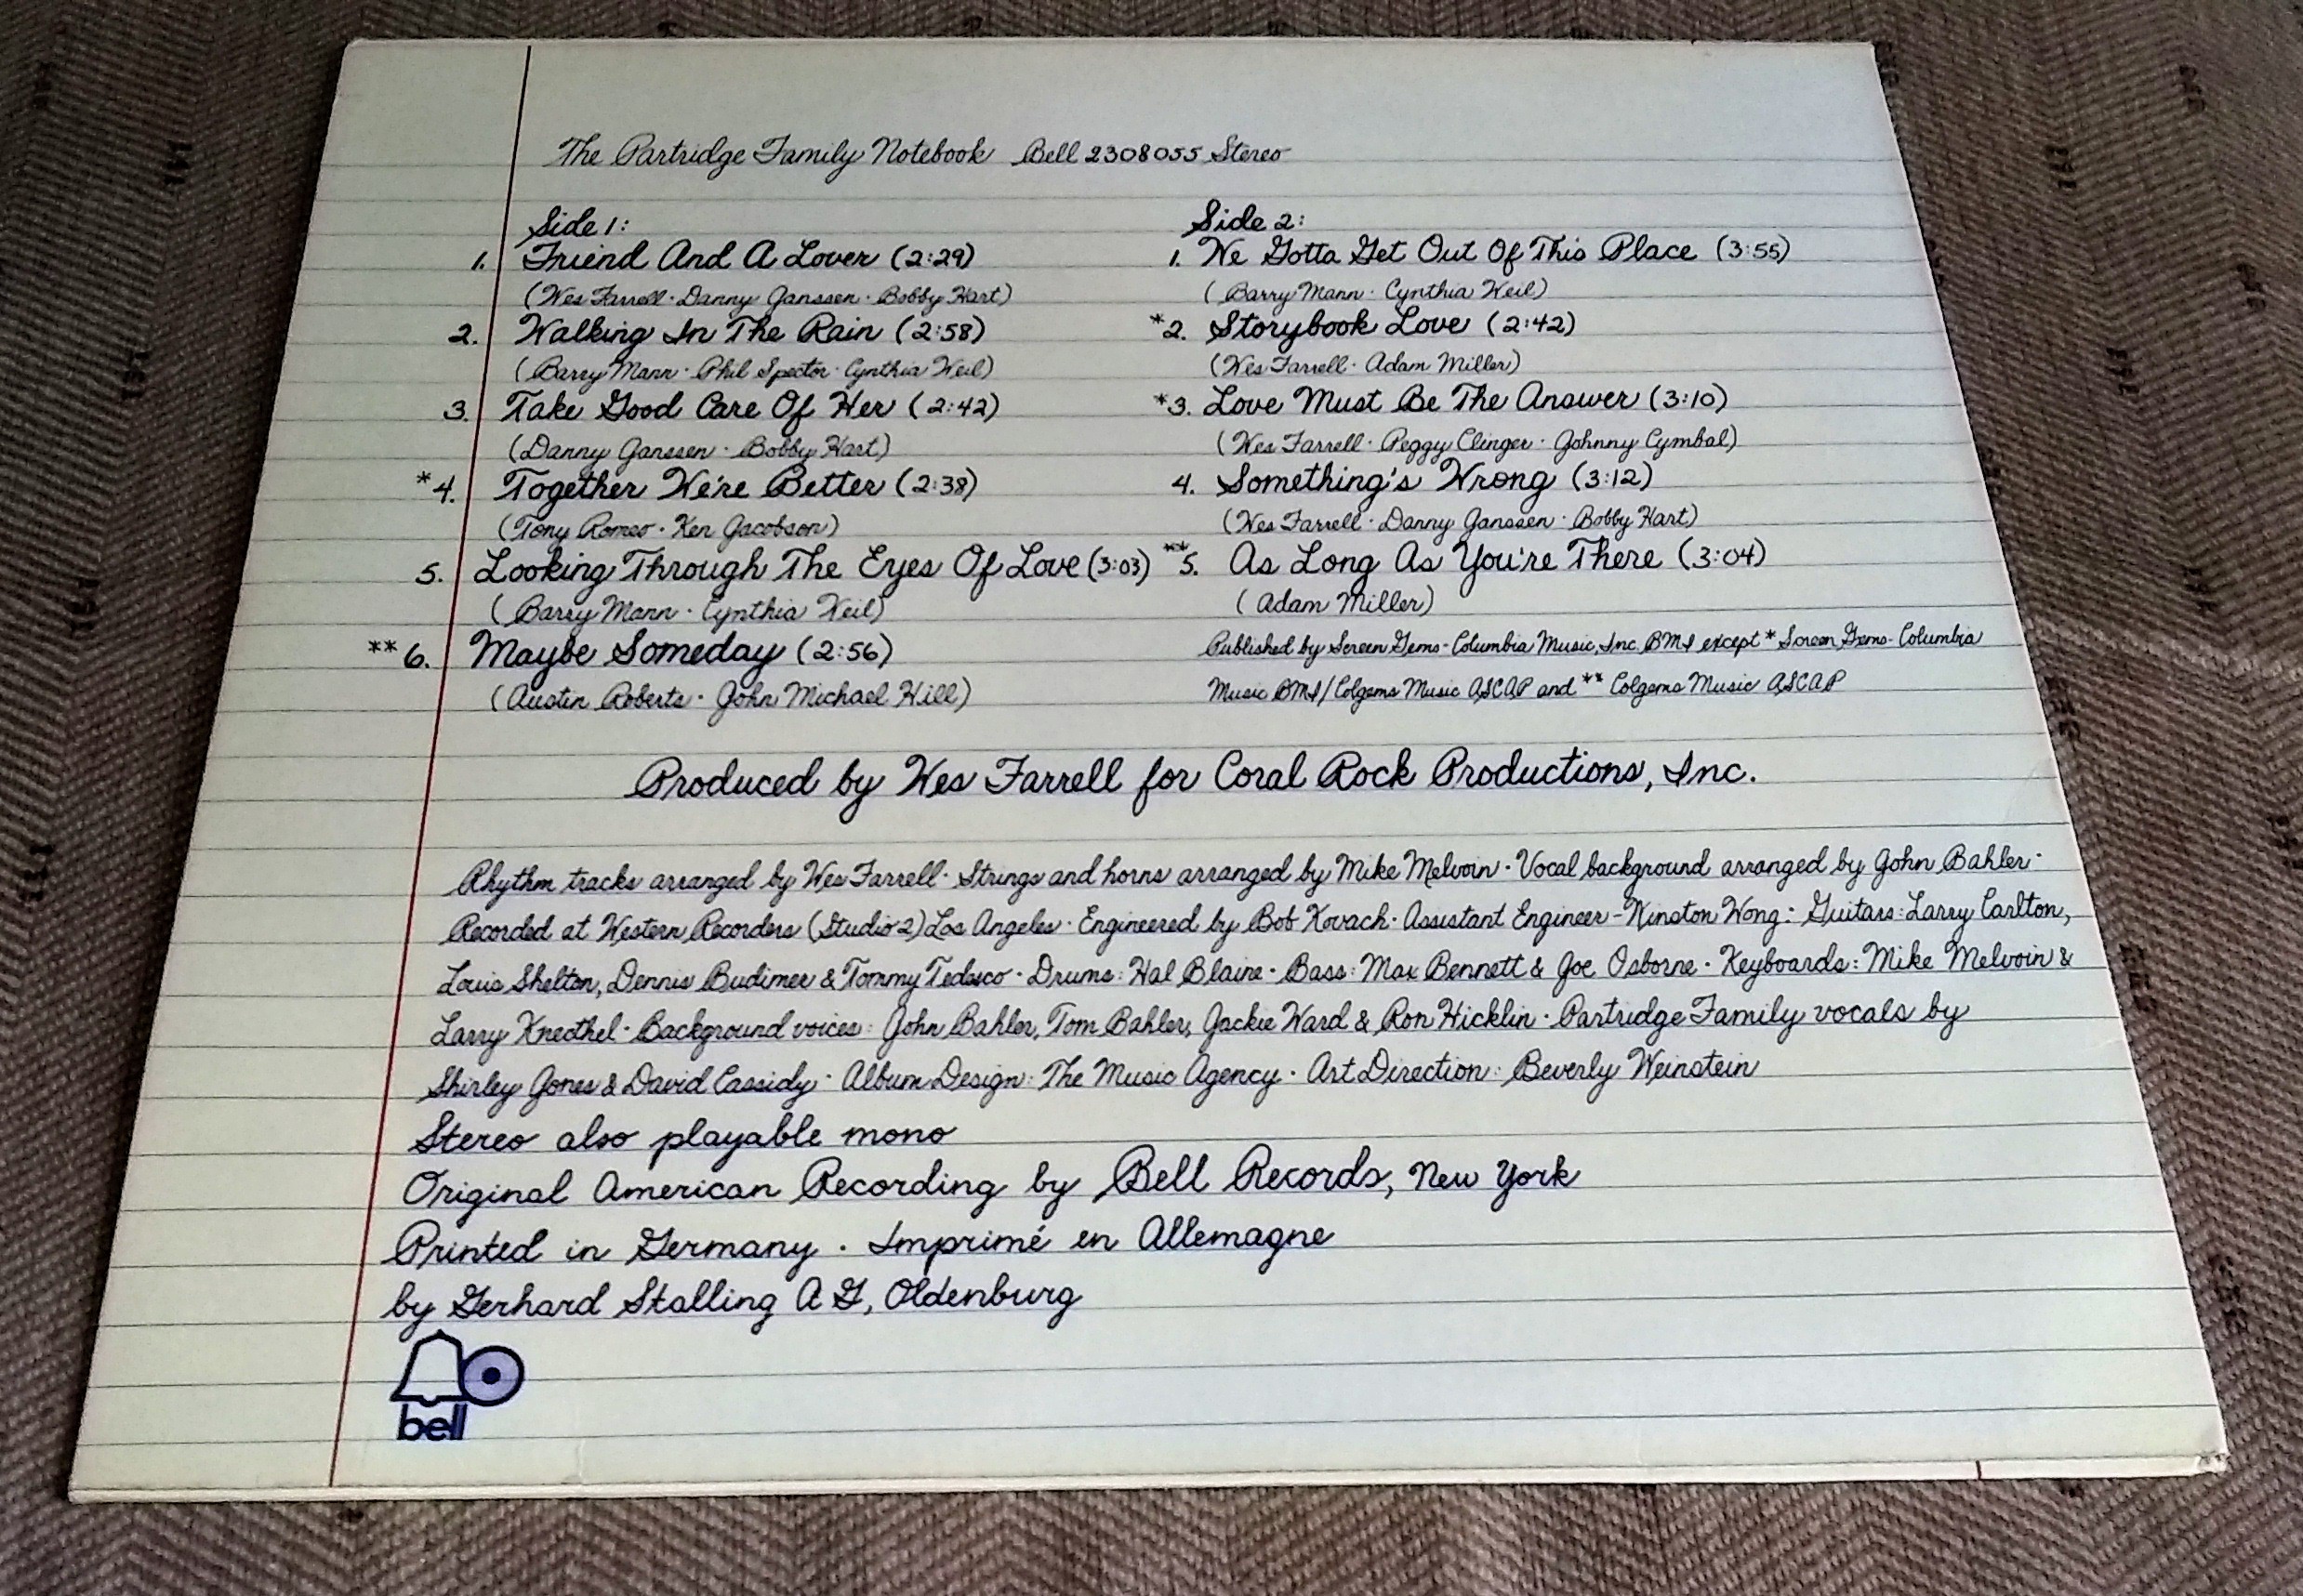 The Partridge Family Notebook Bell 2308055 Stereo
Side 1:
1. Friend And A Lover (2:29)
(Wes Farrell · Danny Janssen · Bobby Hart)
2. Walking In The Rain (2:58)
(Barry Mann · Phil Spector · Cynthia Weil)
3. Take Good Care Of Her (2:42)
(Danny Janssen · Bobby Hart)
*4. Together We're Better (2:38)
(Tony Romeo · Ken Jacobson)
5. Looking Through The Eyes Of Love (3:03)
(Barry Mann · Cynthia Weil)
**6. Maybe Someday (2:56)
(Austin Roberts · John Michael Hill)
Side 2:
1. We Gotta Get Out Of This Place (3:55)
(Barry Mann · Cynthia Weil)
*2. Storybook Love (2:42)
(Wes Farrell · Adam Miller)
*3. Love Must Be The Answer (3:10)
(Wes Farrell · Peggy Clinger · Johnny Cymbal)
4. Something's Wrong (3:12)
(Wes Farrell · Danny Janssen · Bobby Hart)
**5. As Long As You're There (3:04)
(Adam Miller)
Published by Screen Gems-Columbia Music, Inc. BMI except * Screen Gems-Columbia
Music BMI/Colgems Music ASCAP and ** Colgems Music ASCAP
Produced by Wes Farrell for Coral Rock Productions, Inc.
Rhythm tracks arranged by Wes Farrell · Strings and horns arranged by Mike Melvoin · Vocal background arranged by John Bahler ·
Recorded at Western Recorders (Studio 2) Los Angeles · Engineered by Bob Kovach · Assistant Engineer - Winston Wong : Guitars: Larry Carlton,
Louis Shelton, Dennis Budimer & Tommy Tedesco · Drums: Hal Blaine · Bass: Max Bennett & Joe Osborne · Keyboards: Mike Melvoin &
Larry Knecthel · Background voices: John Bahler, Tom Bahler, Jackie Ward & Ron Hicklin · Partridge Family vocals by
Shirley Jones & David Cassidy · Album Design: The Music Agency · Art Direction: Beverly Weinstein
Stereo also playable mono
Original American Recording by Bell Records, New York
Printed in Germany · Imprimé en Allemagne
by Gerhard Stalling AG, Oldenburg
bell